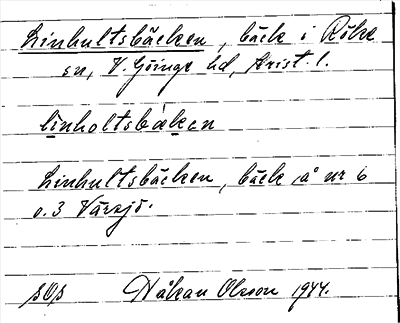 Linhultsbäcken, bäck i Röke
sn, V. Göinge hd, Krist. l.
linholtsbäkən
Linhultsbäcken, bäck å nr 6
o. 3 Värsjö.
Håkan Olsson 1944.